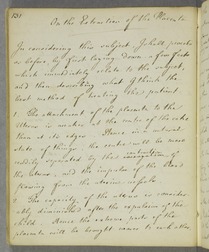 131
On the Extraction of the Placenta
In considering this subject I shall proceed
as before by first laying down a few facts
which immediately relate to the subject
and then describing what I think the
best method of treating the patient
1 The attachment of the placenta to the
Uterus is weaker at the centre of the cake
than at its edges. Hence in a natural
state of things the centre will be most
readily separated by that
the Uterus, and the impulse of the blood
flowing from the uterine vessels
2 The capacity of the uterus is consider-
ably diminished after the expulsion of the
child. Hence the extreme parts of the
placenta will be brought nearer to each other